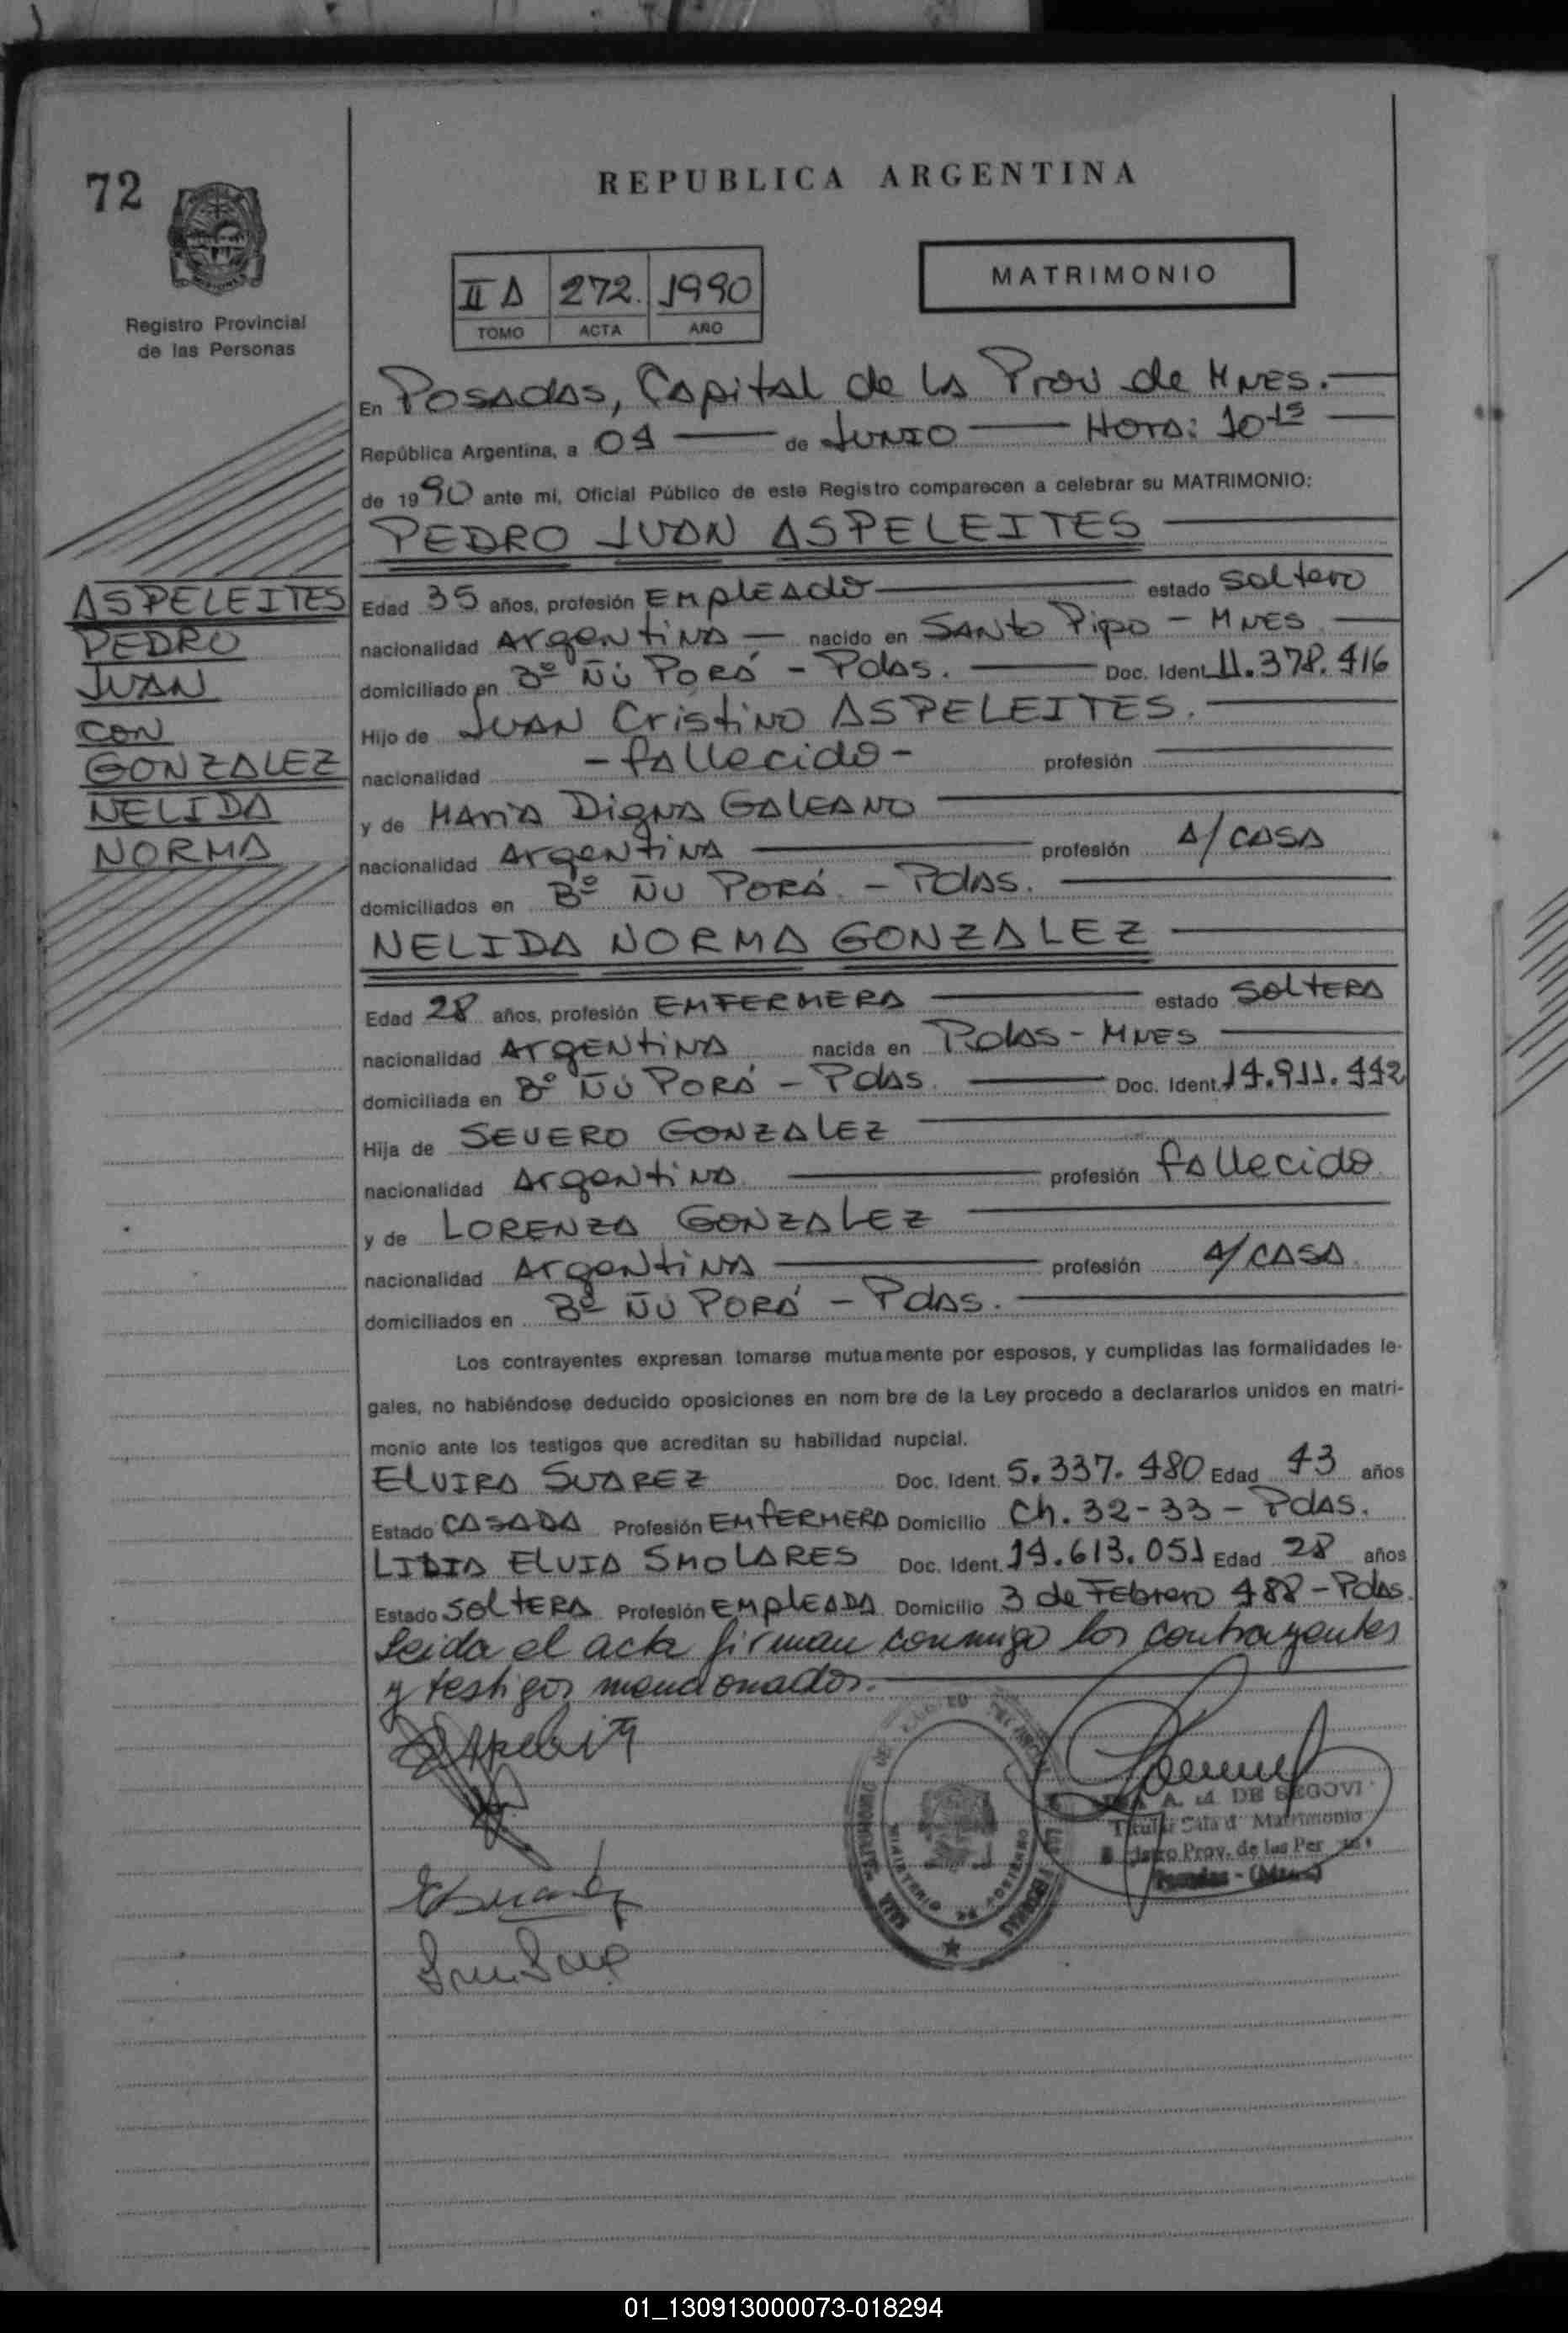 72
REPUBLICA ARGENTINA
Registro Provincial
de las Personas
II A 272. 1990
TOMO ACTA AÑO
MATRIMONIO
En Posadas, Capital de la Prov de Mnes.
República Argentina, a 04 de Junio Hora: 10 15
de 1990 ante mí, Oficial Público de este Registro comparecen a celebrar su MATRIMONIO:
PEDRO JUAN ASPELEITES
ASPELEITES
PEDRO
JUAN
CON
GONZALEZ
NELIDA
NORMA
Edad 35 años, profesión Empleado estado Soltero
nacionalidad Argentina nacido en Santo Pipo - Mnes
domiciliado en Bº Ñú Porá - Pdas. Doc. Ident. 11.378.416
Hijo de Juan Cristino ASPELEITES.
nacionalidad - fallecido - profesión
y de Maria Digna Galeano
nacionalidad Argentina profesión A/casa
domiciliados en Bº Ñu Porá - Pdas.
NELIDA NORMA GONZALEZ
Edad 28 años, profesión Emfermera estado Soltera
nacionalidad Argentina nacida en Pdas - Mnes
domiciliada en Bº Ñú Porá - Pdas. Doc. Ident. 14.911.442
Hija de Severo Gonzalez
nacionalidad Argentino profesión fallecido
y de Lorenza Gonzalez
nacionalidad Argentina profesión A/casa
domiciliados en Bº Ñu Porá - Pdas.
Los contrayentes expresan tomarse mutuamente por esposos, y cumplidas las formalidades le-
gales, no habiéndose deducido oposiciones en nom bre de la Ley procedo a declararlos unidos en matri-
monio ante los testigos que acreditan su habilidad nupcial.
Elvira Suarez Doc. Ident. 5.337.480 Edad 43 años
Estado Casada Profesión Emfermera Domicilio Ch. 32-33 - Pdas.
Lidia Elvia Smolares Doc. Ident. 14.613.051 Edad 28 años
Estado Soltera Profesión Empleada Domicilio 3 de Febrero 488 - Pdas.
Leida el acta firman conmigo los contrayentes
y testigos mencionados.
A. M. DE SEGOVI
Titular Sala d Matrimonio
Prov. de las Per
MINISTERIO DE GOBIERNO
01_130913000073-018294